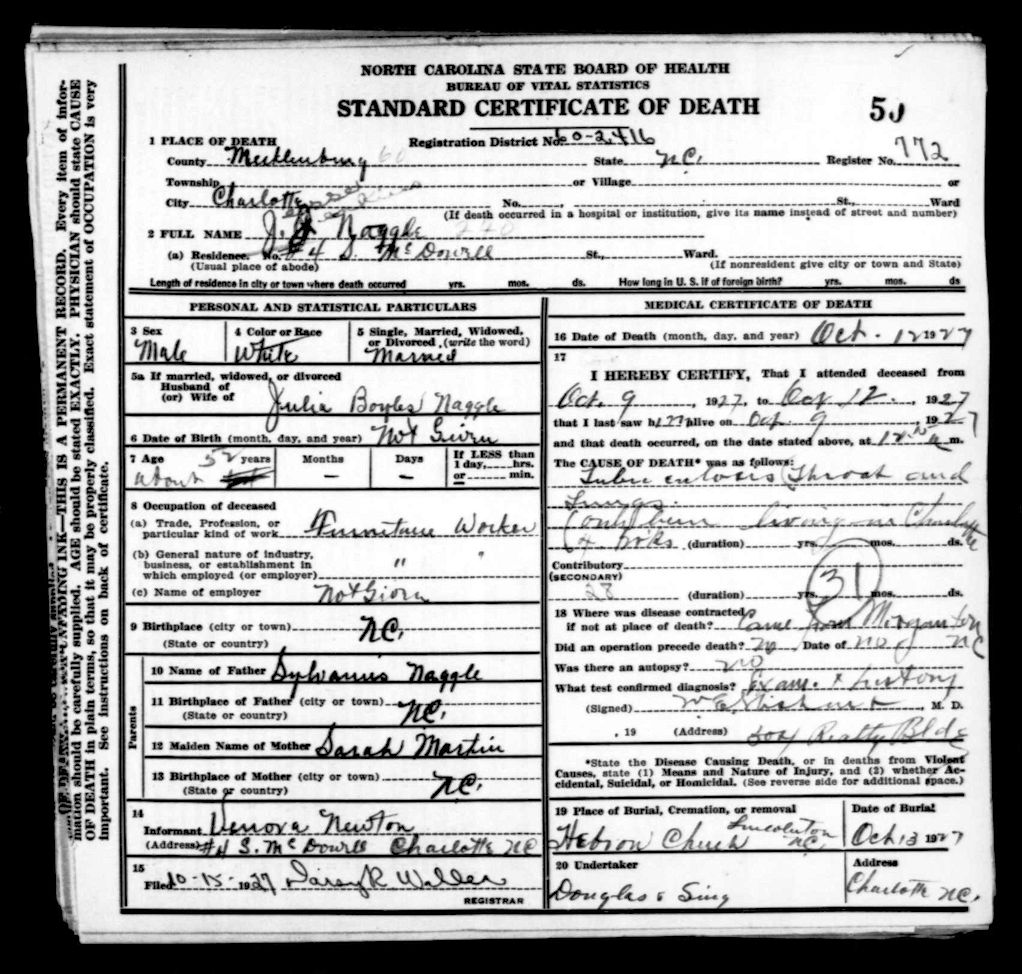 NORTH CAROLINA STATE BOARD OF HEALTH
BUREAU OF VITAL STATISTICS
STANDARD CERTIFICATE OF DEATH
1 PLACE OF DEATH Registration District No. 60-2416
County Mecklenburg 60 State N.C. Register No. 772
Township or Village or
City Charlotte No. St., Ward
(If death occurred in a hospital or institution, give its name instead of street and number)
2 FULL NAME J. Naggle
(a) Residence. No. # 4 S. McDowell St., Ward.
(Usual place of abode) (If nonresident give city or town and State)
Length of residence in city or town where death occurred yrs. mos. ds. How long in U. S. if of foreign birth? yrs. mos. ds
PERSONAL AND STATISTICAL PARTICULARS
3 Sex Male
4 Color or Race White
5 Single, Married, Widowed, or Divorced, (write the word) Married
5a If married, widowed, or divorced
Husband of
(or) Wife of Julia Bowles Naggle
6 Date of Birth (month, day, and year) Not Given
7 Age about 52 years
Months —
Days —
If LESS than
1 day, hrs.
or — min.
8 Occupation of deceased
(a) Trade, Profession, or
particular kind of work Furniture Worker
(b) General nature of industry,
business, or establishment in
which employed (or employer) " "
(c) Name of employer Not Given
9 Birthplace (city or town) N.C.
(State or country)
Parents
10 Name of Father Sylvanus Naggle
11 Birthplace of Father (city or town) N.C.
(State or country)
12 Maiden Name of Mother Sarah Martin
13 Birthplace of Mother (city or town)
(State or country) N.C.
14
Informant Venora Newton
(Address) #4 S. McDowell Charlotte NC
15
Filed 10-15-1927
REGISTRAR
MEDICAL CERTIFICATE OF DEATH
16 Date of Death (month, day, and year) Oct. 12 1927
17
I HEREBY CERTIFY, That I attended deceased from
Oct. 9, 1927, to Oct 12, 1927
that I last saw him alive on Oct. 9 1927
and that death occurred, on the date stated above, at 12 m.
The CAUSE OF DEATH* was as follows:
Tuberculosis (Throat and
Lungs.
(only been living in Charlotte
(duration) yrs. mos. ds.
Contributory
(SECONDARY)
28 (duration) yrs. 31 mos. ds.
18 Where was disease contracted
if not at place of death? Came from Morganton NC
Did an operation precede death? No Date of no
Was there an autopsy? no
What test confirmed diagnosis? Exam. & history
(Signed) , M. D.
, 19 (Address) Realty Bldg
*State the Disease Causing Death, or in deaths from Violent
Causes, state (1) Means and Nature of Injury, and (2) whether Ac-
cidental, Suicidal, or Homicidal. (See reverse side for additional space.)
19 Place of Burial, Cremation, or removal
Hebron Church Lincolnton NC.
Date of Burial
Oct 13 1927
20 Undertaker
Douglas & Sing
Address
Charlotte N.C.
UNFADING INK—THIS IS A PERMANENT RECORD. Every item of infor-
mation should be carefully supplied. AGE should be stated EXACTLY. PHYSICIAN should state CAUSE
OF DEATH in plain terms, so that it may be properly classified. Exact statement of OCCUPATION is very
important. See instructions on back of certificate.